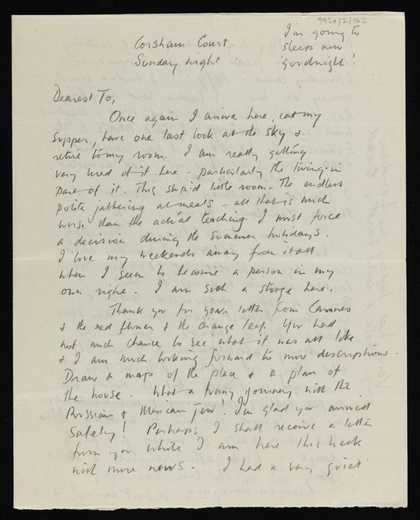 9920/2/162
I'm going to
sleep now
goodnight!
Corsham Court.
Sunday night
Dearest To,
Once again I arrive here, eat my
supper, have one last look at the sky &
retire to my room. I am really getting
very tired of it here - particularly the living-in
part of it. This stupid little room. The endless
polite jabbering at meals - all that is much
worse than the actual teaching. I must force
a decision during the summer holidays.
I love my weekends away from it all
when I seem to become a person in my
own right. I am such a stooge here.
Thank you for your letter from
& the red flower & the orange leaf. You had
not much chance to see what it was all like
& I am much looking forward to more descriptions.
Draw a map of the place & a plan of
the house. What a funny journey with the
Russian & Mexican jew! I'm glad you arrived
safely! Perhaps I shall receive a letter
from you while I am here this week
with more news. I had a very quiet